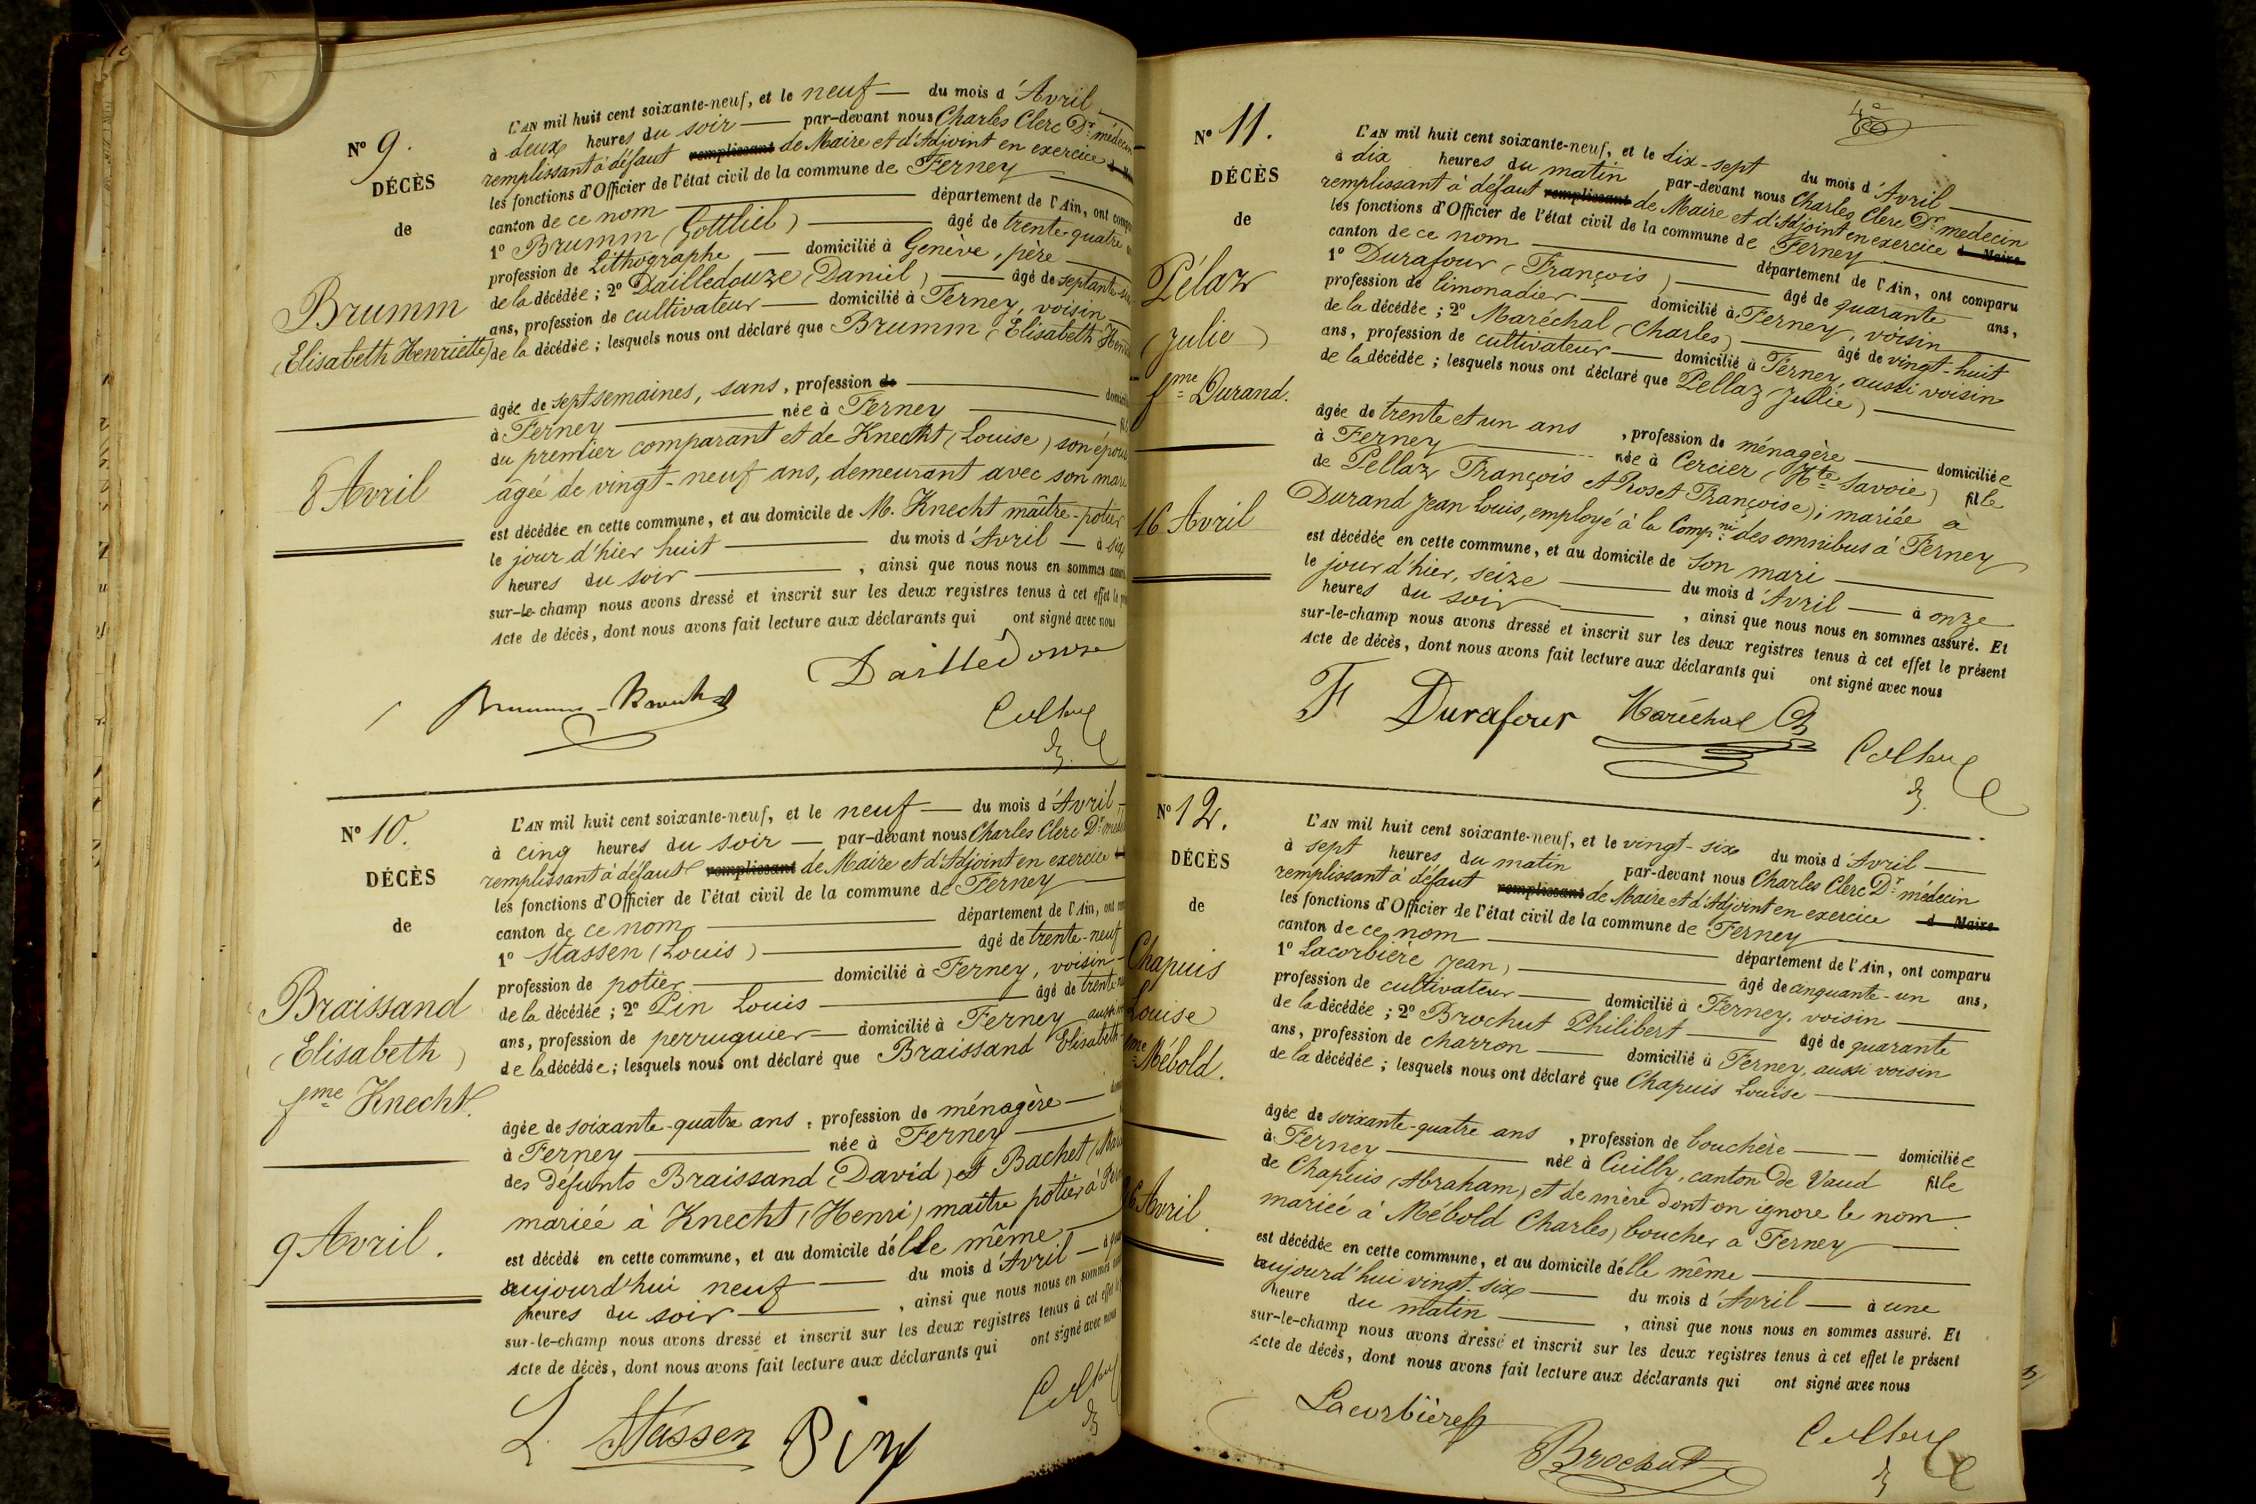 N° 9.
DÉCÈS
de
Brumm
(Elisabeth Henriette)
8 Avril
L'AN mil huit cent soixante-neuf, et le neuf du mois d'Avril
à deux heures du soir par-devant nous Charles Clerc Dr médecin
remplissant à défaut remplissant de Maire et d'Adjoint en exercice
les fonctions d'Officier de l'état civil de la commune de Ferney
canton de ce nom département de l'Ain, ont
1° Brumm (Gottlieb) âgé de trente quatre
profession de Lithographe domicilié à Genève, père
de la décédée ; 2° Dailledouze (Daniel) âgé de septante
ans, profession de cultivateur domicilié à Ferney, voisin
de la décédée ; lesquels nous ont déclaré que Brumm (Elisabeth
âgée de sept semaines, sans, profession de
à Ferney née à Ferney
du premier comparant et de Knecht (Louise) son
âgée de vingt-neuf ans, demeurant avec son
est décédée en cette commune, et au domicile de M. Knecht maître-potier
le jour d'hier huit du mois d'Avril à six
heures du soir , ainsi que nous nous en sommes
sur-le-champ nous avons dressé et inscrit sur les deux registres tenus à cet effet le
Acte de décès, dont nous avons fait lecture aux déclarants qui ont signé avec nous
Dailledouze
Brumm-Knecht
N° 10.
DÉCÈS
de
Braissand
(Elisabeth)
fme Knecht.
9 Avril.
L'AN mil huit cent soixante-neuf, et le neuf du mois d'Avril
à cinq heures du soir par-devant nous Charles Clerc Dr
remplissant à défaut remplissant de Maire et d'Adjoint en exercice
les fonctions d'Officier de l'état civil de la commune de Ferney
canton de ce nom département de l'Ain, ont
1° Stassen (Louis) âgé de trente-neuf
profession de potier domicilié à Ferney, voisin
de la décédée ; 2° Pin Louis âgé de trente
ans, profession de perruquier domicilié à Ferney
de la décédée ; lesquels nous ont déclaré que Braissand Elisabeth
âgée de soixante-quatre ans, profession de ménagère
à Ferney née à Ferney
des défunts Braissand (David) et Bachet
mariée à Knecht (Henri) maître potier à
est décédé en cette commune, et au domicile d'elle même
aujourd'hui neuf du mois d'Avril à
heures du soir , ainsi que nous nous en sommes
sur-le-champ nous avons dressé et inscrit sur les deux registres tenus à cet effet
Acte de décès, dont nous avons fait lecture aux déclarants qui ont signé avec nous
L. Stassen Pin
N° 11.
DÉCÈS
de
Pélaz
(Julie)
fme Durand.
16 Avril
L'AN mil huit cent soixante-neuf, et le dix-sept du mois d'Avril
à dix heures du matin par-devant nous Charles Clerc Dr medecin
remplissant à défaut remplissant de Maire et d'Adjoint en exercice d Maire
les fonctions d'Officier de l'état civil de la commune de Ferney
canton de ce nom département de l'Ain, ont comparu
1° Durafour (François) âgé de quarante ans,
profession de limonadier domicilié à Ferney, voisin
de la décédée ; 2° Maréchal (Charles) âgé de vingt-huit
ans, profession de cultivateur domicilié à Ferney, aussi voisin
de la décédée ; lesquels nous ont déclaré que Pellaz (Julie)
âgée de trente et un ans , profession de ménagère domiciliée
à Ferney née à Cercier (Hte Savoie) fille
de Pellaz François et Roset Françoise ; mariée à
Durand Jean Louis, employé à la Compnie des omnibus à Ferney
est décédée en cette commune, et au domicile de son mari
le jour d'hier, seize du mois d'Avril à onze
heures du soir , ainsi que nous nous en sommes assuré. Et
sur-le-champ nous avons dressé et inscrit sur les deux registres tenus à cet effet le présent
Acte de décès, dont nous avons fait lecture aux déclarants qui ont signé avec nous
F. Durafour Maréchal Ch
N° 12.
DÉCÈS
de
Chapuis
Louise
Mébold.
Avril.
L'AN mil huit cent soixante-neuf, et le vingt-six du mois d'Avril
à sept heures du matin par-devant nous Charles Clerc Dr médecin
remplissant à défaut remplissant de Maire et d'Adjoint en exercice d Maire
les fonctions d'Officier de l'état civil de la commune de Ferney
canton de ce nom département de l'Ain, ont comparu
1° Lacorbière Jean, âgé de cinquante-un ans,
profession de cultivateur domicilié à Ferney, voisin
de la décédée ; 2° Brochut Philibert âgé de quarante
ans, profession de charron domicilié à Ferney, aussi voisin
de la décédée ; lesquels nous ont déclaré que Chapuis Louise
âgée de soixante-quatre ans , profession de bouchère domiciliée
à Ferney née à Cuilly, canton de Vaud fille
de Chapuis (Abraham) et de mère dont on ignore le nom.
mariée à Mébold Charles, boucher à Ferney
est décédée en cette commune, et au domicile d'elle même
aujourd'hui vingt-six du mois d'Avril à une
heure du matin , ainsi que nous nous en sommes assuré. Et
sur-le-champ nous avons dressé et inscrit sur les deux registres tenus à cet effet le présent
Acte de décès, dont nous avons fait lecture aux déclarants qui ont signé avec nous
Lacorbière
Brochut